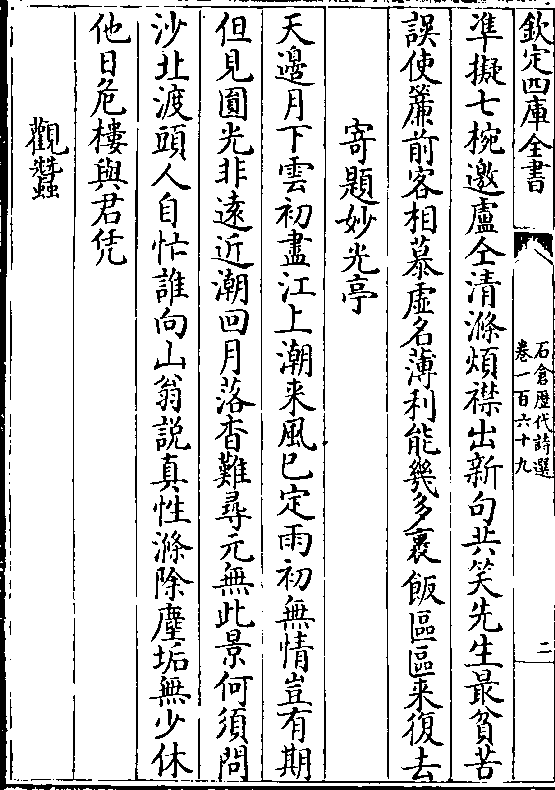 欽定四庫全書
石倉歴代詩選
卷一百六十九
二
凖擬七椀邀盧仝清滌煩襟出新句共笑先生最貧苦
誤使簾前客相慕虛名薄利能幾多裹飯區區来復去
寄題妙光亭
天邊月下雲初盡江上潮来風已定雨初無情豈有期
但見圓光非遠近潮回月落杳難尋元無此景何須問
沙北渡頭人自忙誰向山翁説真性滌除塵垢無少休
他日危樓與君凭
觀蠶